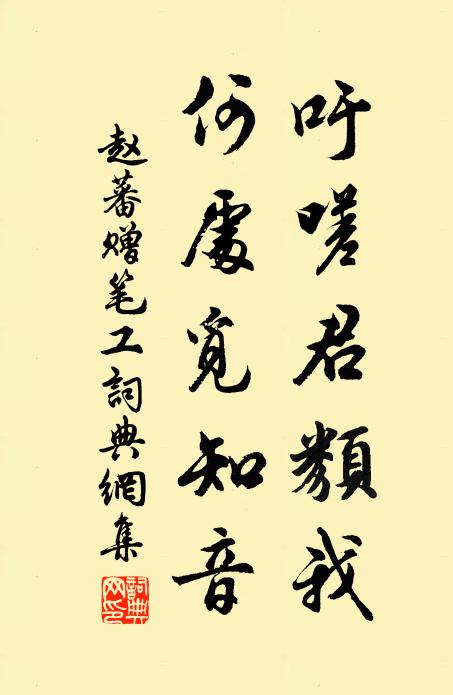 吁嗟君類我
何處覓知音
赵蕃赠笔工詞典網集
詞典网印